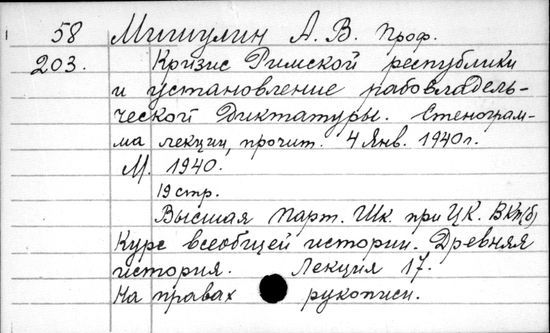 58 Мишулин А. В. проф.
203. Кризис Римской республики
и установление рабовладель-
ческой диктатуры. Стенограм-
ма лекции, прочит. 4 Янв. 1940г.
М. 1940.
19 стр.
Высшая парт. Шк при ЦК. ВКП(б)
Курс всеобщей истории. Древняя
история. Лекция 17.
На правах рукописи.